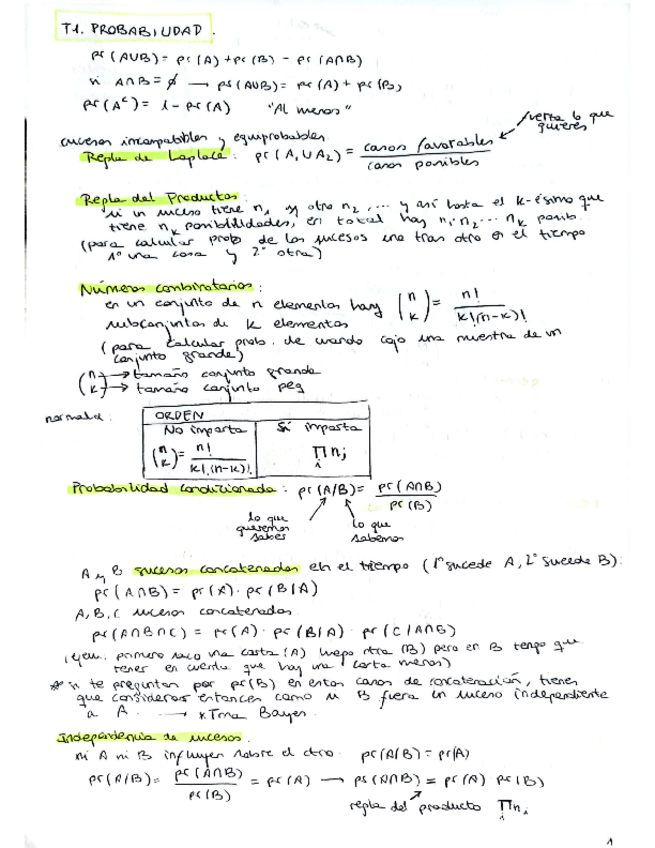 T1. PROBABILIDAD.
pr (A∪B) = pr (A) + pr (B) - pr (A∩B)
si A∩B = ∅ → pr (A∪B) = pr (A) + pr (B)
pr (Aᶜ) = 1 - pr (A) "Al menos"
sucesos incompatibles y equiprobables
Regla de Laplace: pr (A₁ ∪ A₂) = casos favorables / casos posibles
lo que quieres
Regla del Producto:
si un suceso tiene n₁ y otro n₂, ... y así hasta el k-ésimo que
tiene nₖ posibilidades, en total hay n₁·n₂ ... nₖ posib.
(para calcular prob de los sucesos uno tras otro en el tiempo
1º una cosa y 2º otra)
Números combinatorios:
en un conjunto de n elementos hay (n k) = n! / k!(n-k)!
subconjuntos de k elementos
(para calcular prob. de cuando cojo una muestra de un
conjunto grande)
(n → tamaño conjunto grande
k) → tamaño conjunto peq
ORDEN
No importa Sí importa
(n k) = n! / k!·(n-k)! ∏ nᵢ
i
Probabilidad condicionada: pr (A/B) = pr (A∩B) / pr (B)
lo que queremos saber
lo que sabemos
A y B sucesos concatenados en el tiempo (1º sucede A, 2º sucede B):
pr (A∩B) = pr (A) · pr (B|A)
A, B, C sucesos concatenados
pr (A∩B∩C) = pr (A) · pr (B|A) · pr (C/A∩B)
(ejem. primero saco una carta (A) luego otra (B) pero en B tengo que
tener en cuenta que hay una carta menos)
* si te preguntan por pr (B) en estos casos de concatenación, tienes
que considerar entonces como si B fuera un suceso independiente
a A. → *Tma Bayes.
Independencia de sucesos.
ni A ni B influyen sobre el otro pr (A/B) = pr (A)
pr (A/B) = pr (A∩B) / pr (B) = pr (A) → pr (A∩B) = pr (A) pr (B)
regla del producto ∏ nᵢ
i
1